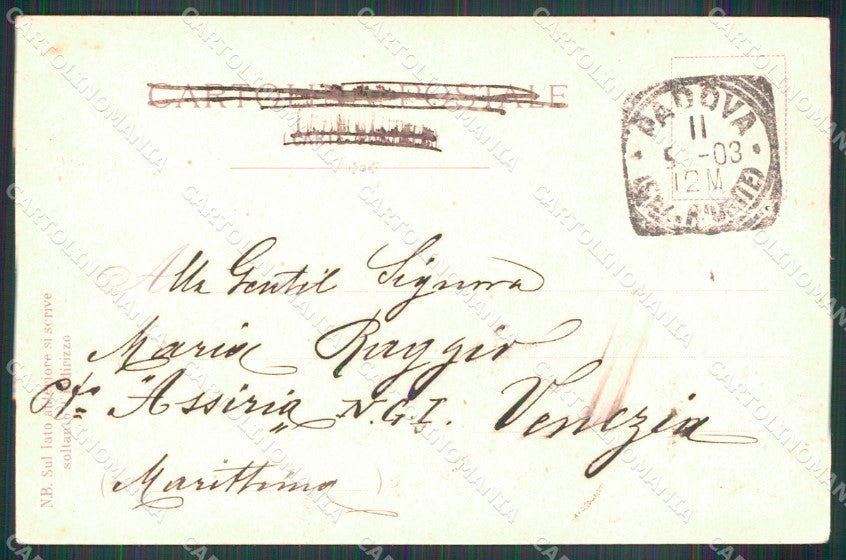 CARTOLINA POSTALE
PADOVA
11
-03
12M
Alla Gentil Signora
Maria Raggio
"Assiria" N.G.I. Venezia
(Marittima)
N.B. Sul lato anteriore si scrive
soltanto l'indirizzo
CARTOLINOMANIA